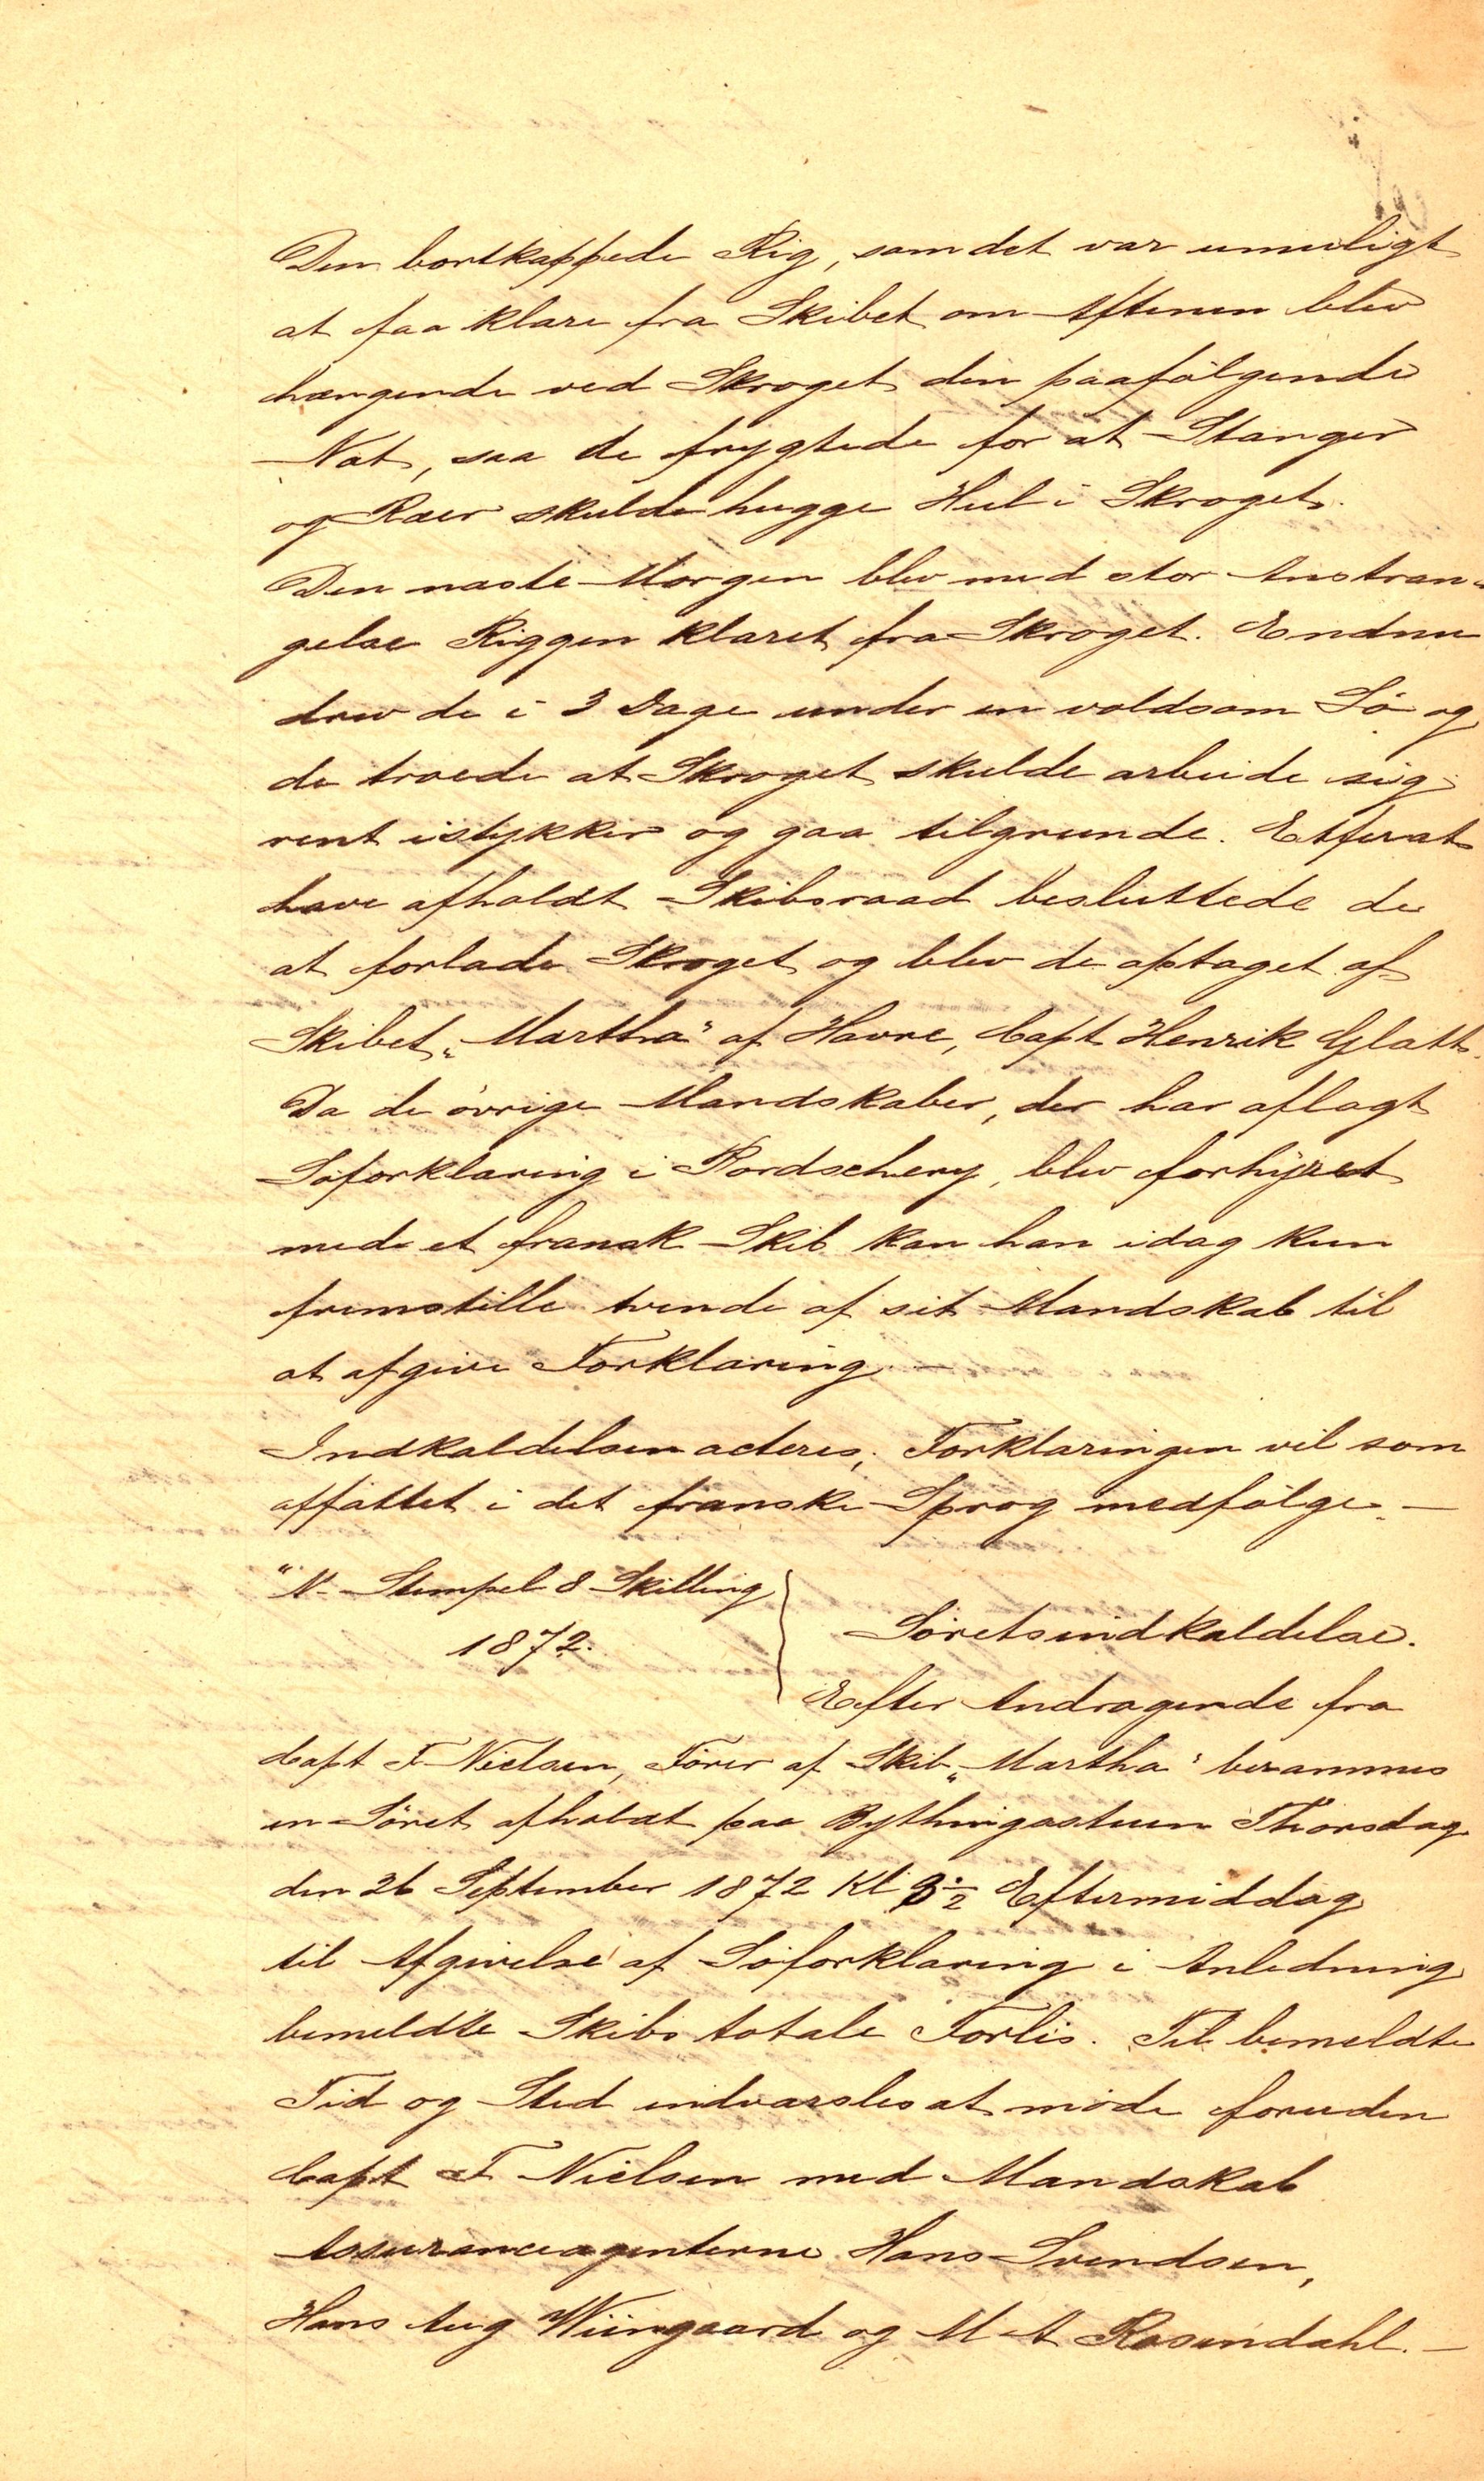 Den bortkappede Rig, som det var umuligt
at faa klare fra Skibet om Aftenen blev
hængende ved Skroget den paafølgende
Nat, saa de frygtede for at Stænger
og Raaer skulde hugge Hul i Skroget.
Den næste Morgen blev med stor Anstræn-
gelse Riggen klaret fra Skroget. Endnu
drev de i 3 Dage under en voldsom Sø og
de troede at Skroget skulde arbeide sig
rent istykker og gaa tilgrunde. Efterat
have afholdt Skibsraad besluttede de
at forlade Skroget og blev de optaget af
Skibet „Martha" af Havre, Capt Henrik Glatt.
Da de øvrige Mandskaber, der har aflagt
Søforklaring i Pordschery, blev forhyret
med et fransk Skib kan han idag kun
fremstille tvende af sit Mandskab til
at afgive Forklaring. —
Indkaldelsen acteres, Forklaringen vil som
affattet i det franske Sprog medfølge. —
"N- Stempel 8 Skilling
1872.
Søretsindkaldelse.
Efter Andragende fra
Capt F Nielsen, Fører af Skib „Martha" berammes
en Søret afholdt paa Bythingsstuen Thorsdag
den 26 September 1872 Kl 3½ Eftermiddag
til Afgivelse af Søforklaring i Anledning
bemeldte Skibs totale Forlis. Til bemeldte
Tid og Sted indvarsles at møde foruden
Capt F Nielsen med Mandskab
Assuranceagenterne Hans Svendsen,
Hans Aug Wiingaard og M A Rosendahl. —